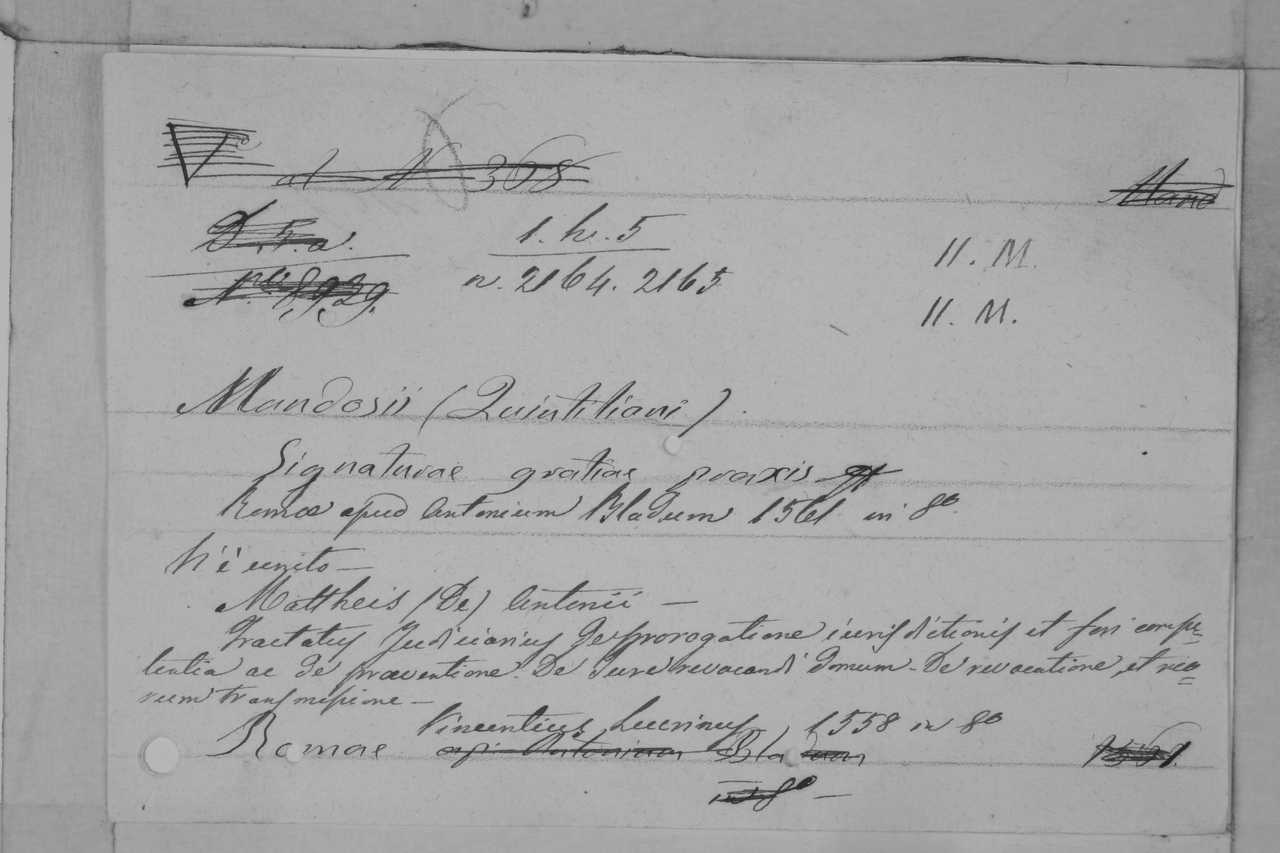 V.e al N. 368
Mand
D.5.a. 1. h. 5
II. M.
N. 8,9.29. n. 2164. 2165
II. M.
Mandosii (Quintiliani).
Signaturae gratiae praxis
Romæ apud Antonium Bladum 1561 in 8º.
V'è unito —
Mattheis (De) Antonii —
Tractatus Judiciarius De prorogatione iurisdictionis et fori compe=
tentia ac de præventione. De Jure revocandi domum - De revocatione, et reo=
rum transmissione —
Vincentius Lucrinus, 1558 in 8º
Romae apud Antonium Bladum 1561.
in 8º —